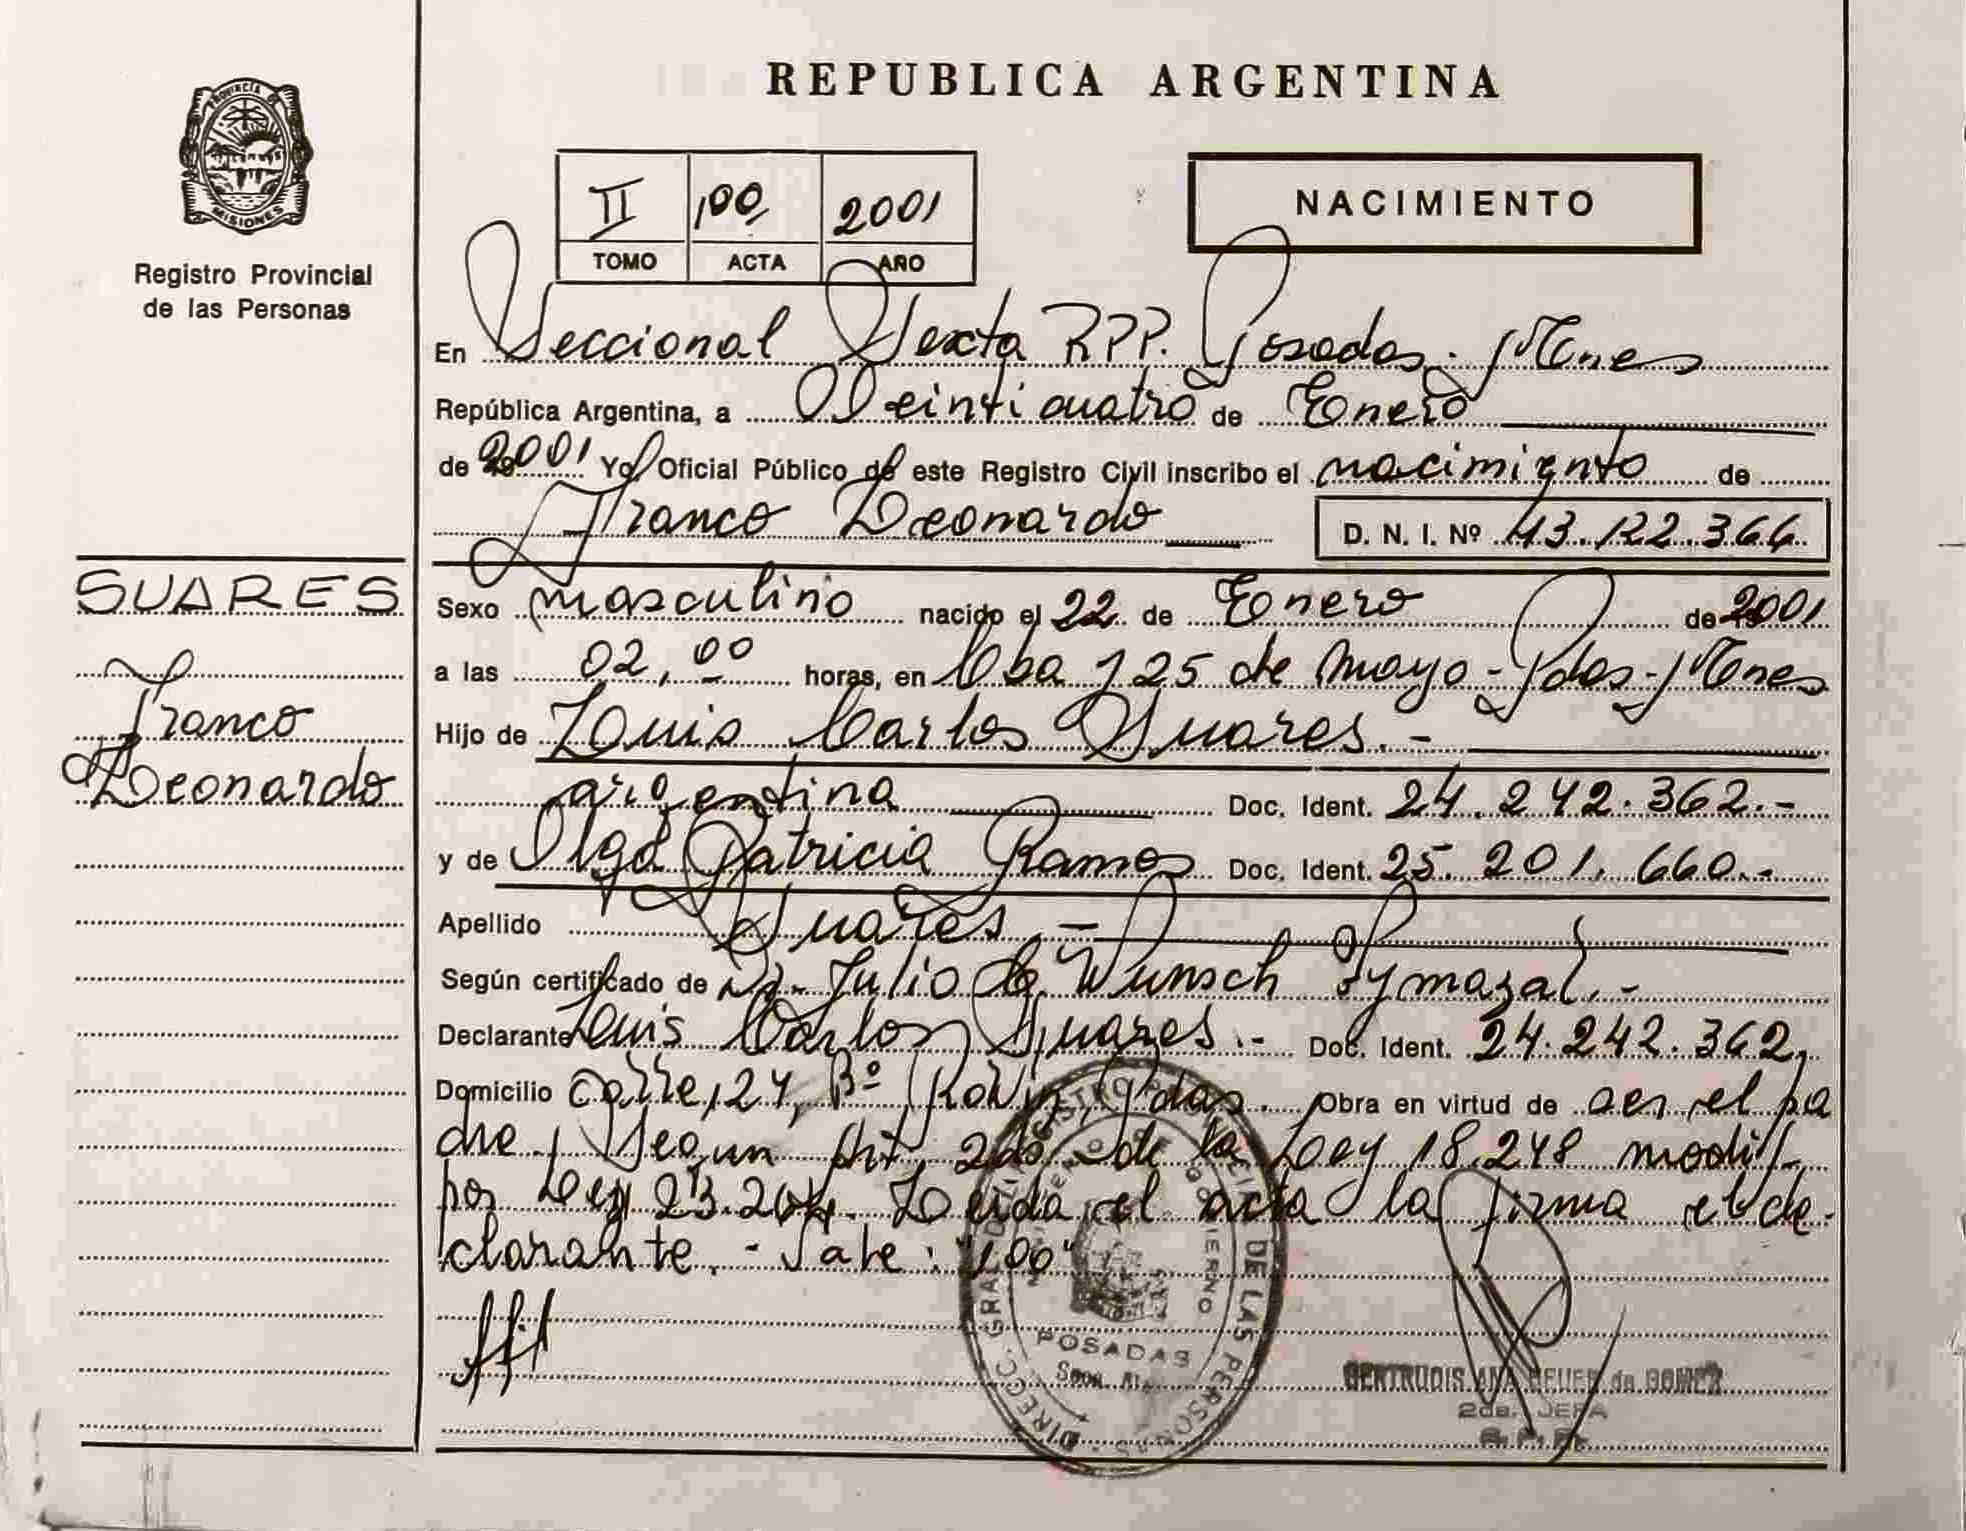 REPUBLICA ARGENTINA
PROVINCIA DE
MISIONES
Registro Provincial
de las Personas
II 100 2001
TOMO ACTA AÑO
NACIMIENTO
En Seccional Sexta RPP. Posadas. Mnes
República Argentina, a Veinticuatro de Enero
de 2001 Yo, Oficial Público de este Registro Civil inscribo el nacimiento de
Franco Leonardo D. N. I. Nº 43.122.366
SUARES
Franco
Leonardo
Sexo masculino nacido el 22 de Enero de 2001
a las 02,00 horas, en Cba y 25 de Mayo - Pdas - Mnes
Hijo de Luis Carlos Suares.-
argentina Doc. Ident. 24.242.362.-
y de Olga Patricia Ramos Doc. Ident. 25.201.660.-
Apellido Suares.-
Según certificado de Dr. Julio C. Wunsch Symazal.-
Declarante Luis Carlos Suares.- Doc. Ident. 24.242.362,
Domicilio Calle 124, Bº Row Pdas. Obra en virtud de ser el pa
dre. Segun Art. 2do de la Ley 18.248 modif.
por Ley 23.264. Leida el acta la firma el de-
clarante. - Vale: "100"
DIRECC. GRAL. DEL REGISTRO PROVINCIAL DE LAS PERSONAS
MINISTERIO DE GOBIERNO
POSADAS
GERTRUDIS ANA de GOMEZ
2da. JEFA